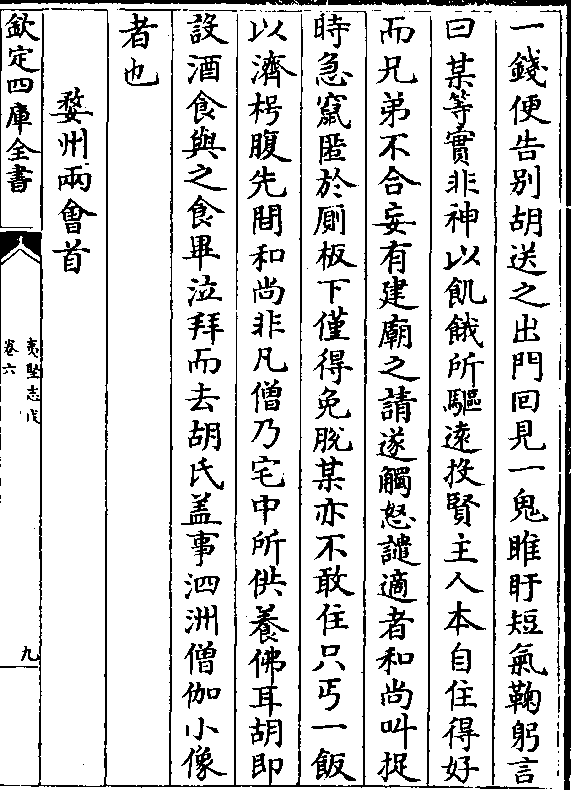 一錢便告别胡送之出門回見一鬼睢盱短氣鞠躬言
曰某等實非神以飢餓所驅遠投賢主人本自住得好
而兄弟不合妄有建廟之請遂觸怒譴適者和尚叫捉
時急竄匿於厠板下僅得免脱某亦不敢住只丐一飯
以濟枵腹先間和尚非凡僧乃宅中所供養佛耳胡即
設酒食與之食畢泣拜而去胡氏盖事泗洲僧伽小像
者也
婺州兩會首
欽定四庫全書
夷堅志戊
卷六
九